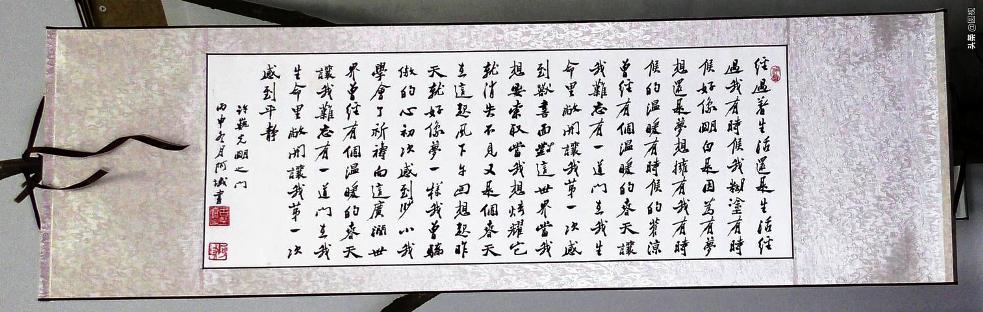 經過着生活還是生活經
過我有時候我糊塗有時
候好像明白是因為有夢
想還是夢想擁有我有時
候的溫暖有時候的蒼涼
曾經有個溫暖的春天讓
我難忘有一道門在我生
命里敞開讓我第一次感
到歡喜面對這世界當我
想要索取當我想炫耀它
就消失不見又是個春天
在這起風下午回想起昨
天就好像夢一樣我曾驕
傲的心初次感到渺小我
學會了祈禱向這廣闊世
界曾經有個溫暖的春天
讓我難忘有一道門在我
生命里敞開讓我第一次
感到平靜
許巍光明之門
丙申月阿書
头条